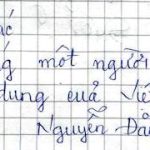 ác
g một người
dung cuả Viê
Nguyễn Đă